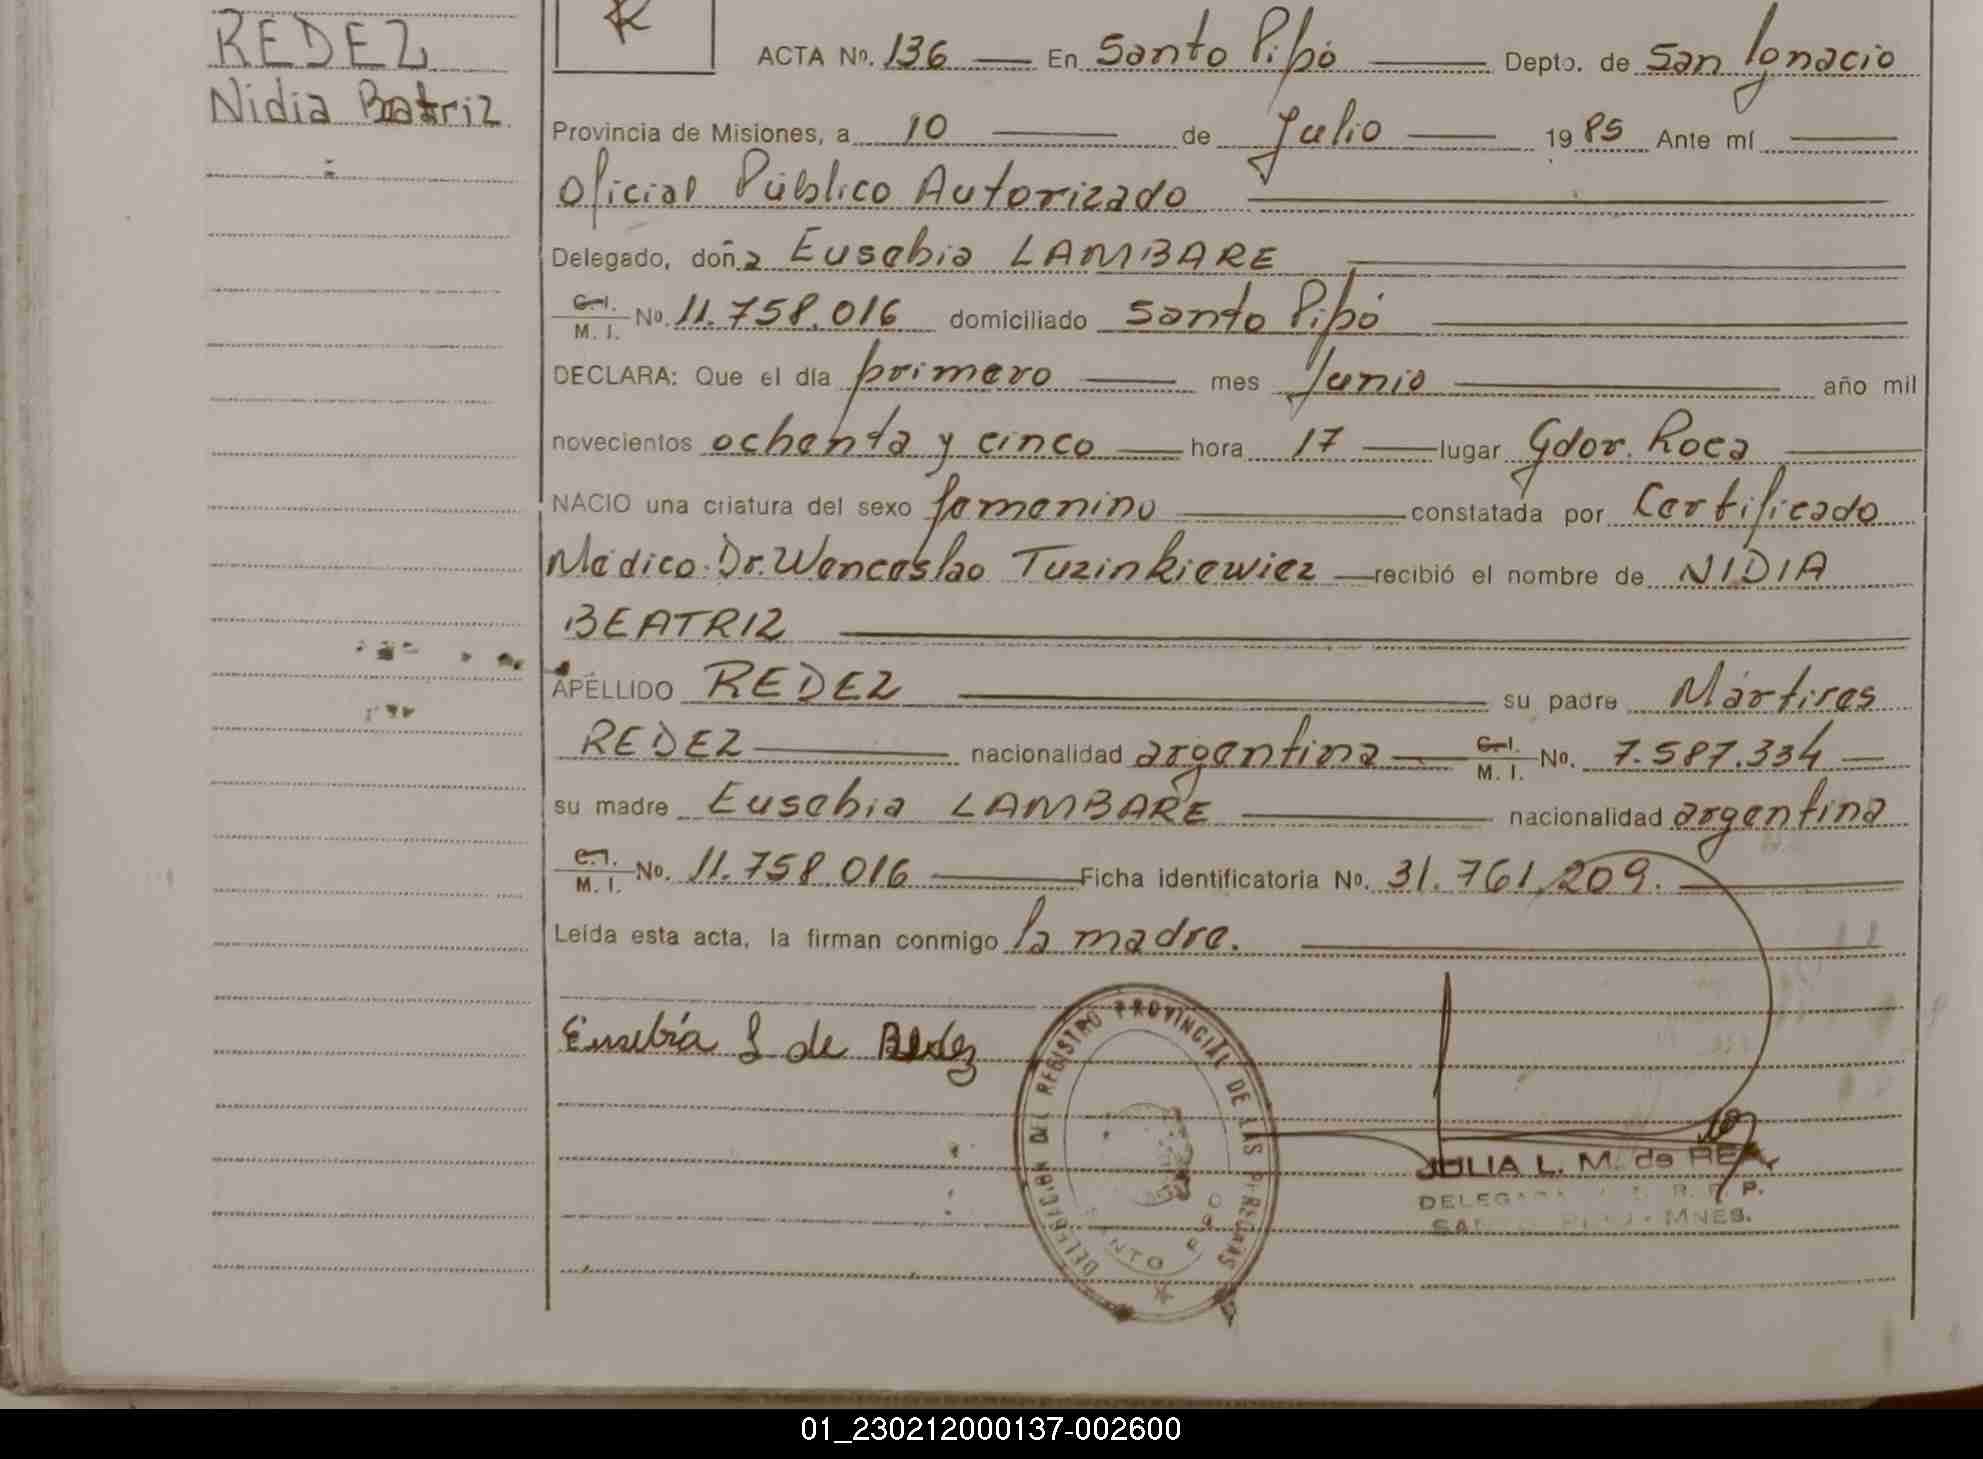 REDEZ
Nidia Beatriz
R
ACTA No. 136 En Santo Pipó Depto. de San Ignacio
Provincia de Misiones, a 10 de Julio 1985 Ante mí
Oficial Público Autorizado
Delegado, doña Eusebia LAMBARE
C.I. M. I. No. 11.758.016 domiciliado Santo Pipó
DECLARA: Que el día primero mes Junio año mil
novecientos ochenta y cinco hora 17 lugar Gdor. Roca
NACIO una criatura del sexo femenino constatada por Certificado
Médico Dr. Wenceslao Tuzinkiewicz recibió el nombre de NIDIA
BEATRIZ
APELLIDO REDEZ su padre Mártires
REDEZ nacionalidad argentina C.I. M. I. No. 7.587.334
su madre Eusebia LAMBARE nacionalidad argentina
C.I. M. I. No. 11.758.016 Ficha identificatoria No. 31.761.209.
Leída esta acta, la firman conmigo la madre.
Eusebia L de Redez
DELEGACION DEL REGISTRO PROVINCIAL DE LAS PERSONAS
SANTO PIPO
JULIA L. M. de REA
DELEGADA R. P. P.
SANTO PIPO - MNES.
01_230212000137-002600